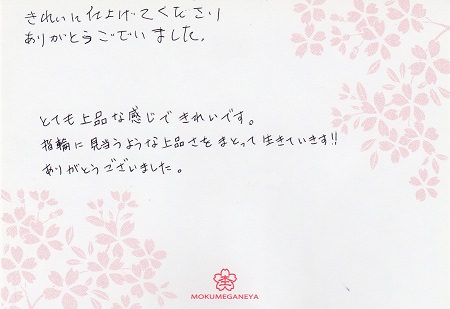 きれいに仕上げてくださり
ありがとうございました。
とても上品な感じできれいです。
指輪に見当うような上品さをまとって生きていきす!!
ありがとうございました。
MOKUMEGANEYA